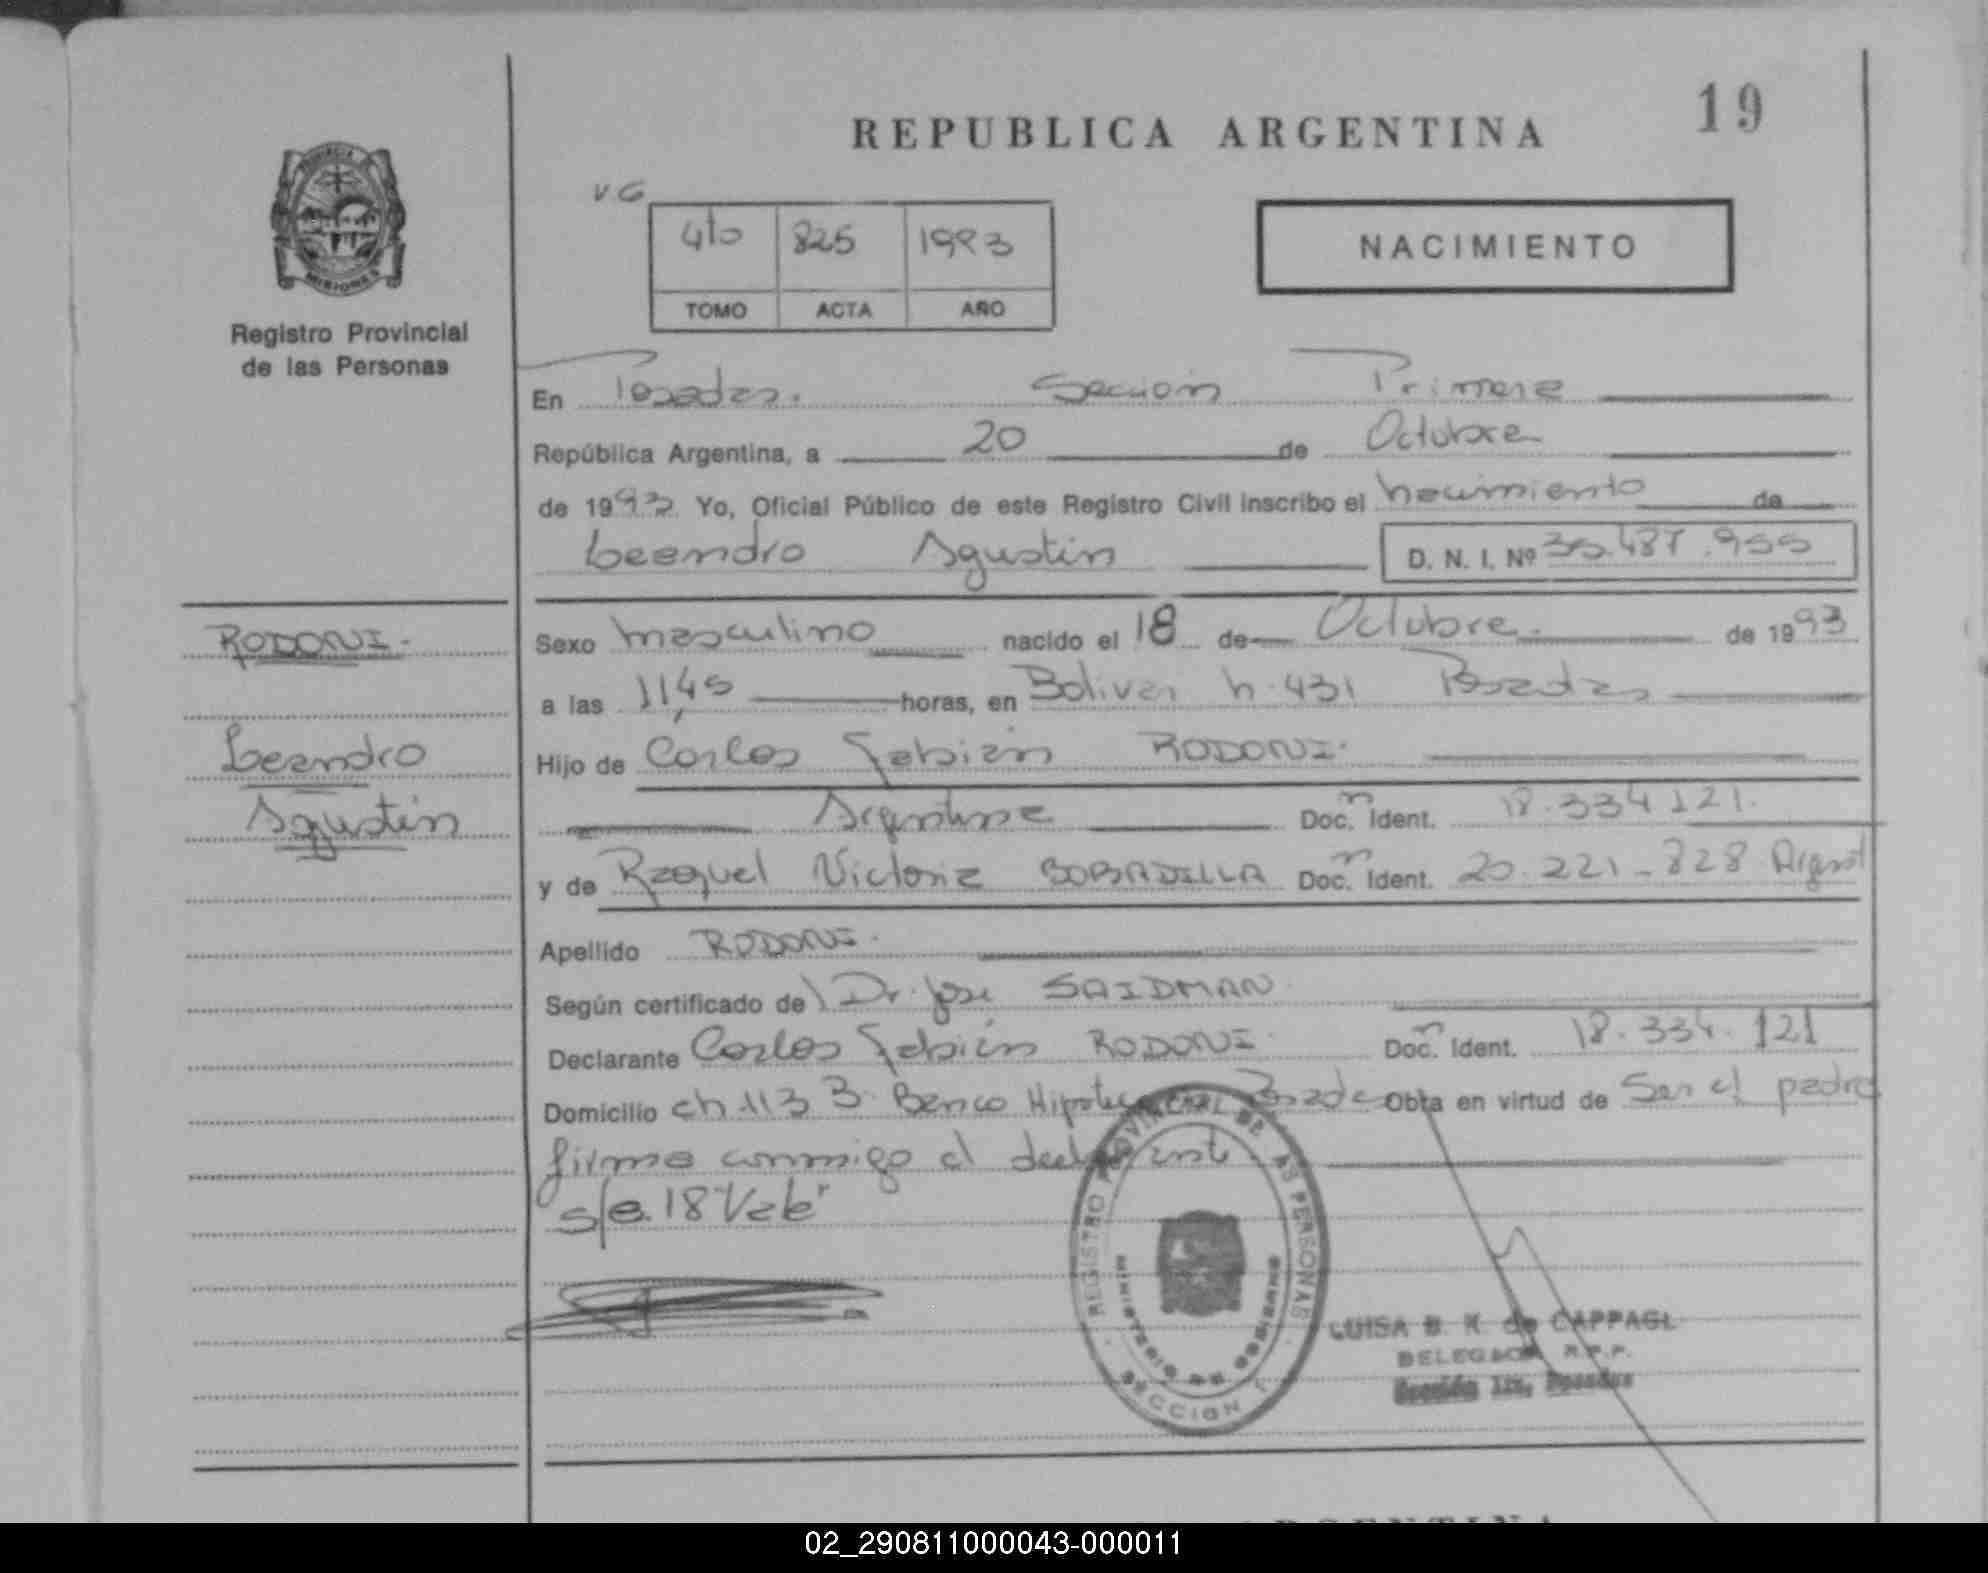 19
REPUBLICA ARGENTINA
VG
4to 825 1993
TOMO ACTA AÑO
NACIMIENTO
PROVINCIA DE
MISIONES
Registro Provincial
de las Personas
En Posadas. Sección Primera
República Argentina, a 20 de Octubre
de 1993. Yo, Oficial Público de este Registro Civil inscribo el nacimiento de
Leandro Agustín D. N. I. Nº 35.487.955
RODONI.
Leandro
Agustín
Sexo masculino nacido el 18 de Octubre. de 1993
a las 11,45 horas, en Bolivar n. 431 Posadas
Hijo de Carlos Fabián RODONI.
Argentina Doc. Ident. 18.334 121.
y de Raquel Victoria BOBADILLA Doc. Ident. 20.221-828 Argent
Apellido RODONI.
Según certificado de Dr. José SAIDMAN
Declarante Carlos Fabián RODONI. Doc. Ident. 18.334.121
Domicilio ch 113 B. Banco Hipotec Posadas Obra en virtud de Ser el padre
firma conmigo el declarante
s/e. 18 "Vale"
REGISTRO PROVINCIAL DE LAS PERSONAS
MINISTERIO DE GOBIERNO
SECCION 1
LUISA B. K. de CAPPAGL
DELEGADA R.P.P.
Sección 1ra, Posadas
ARGENTINA
02_290811000043-000011